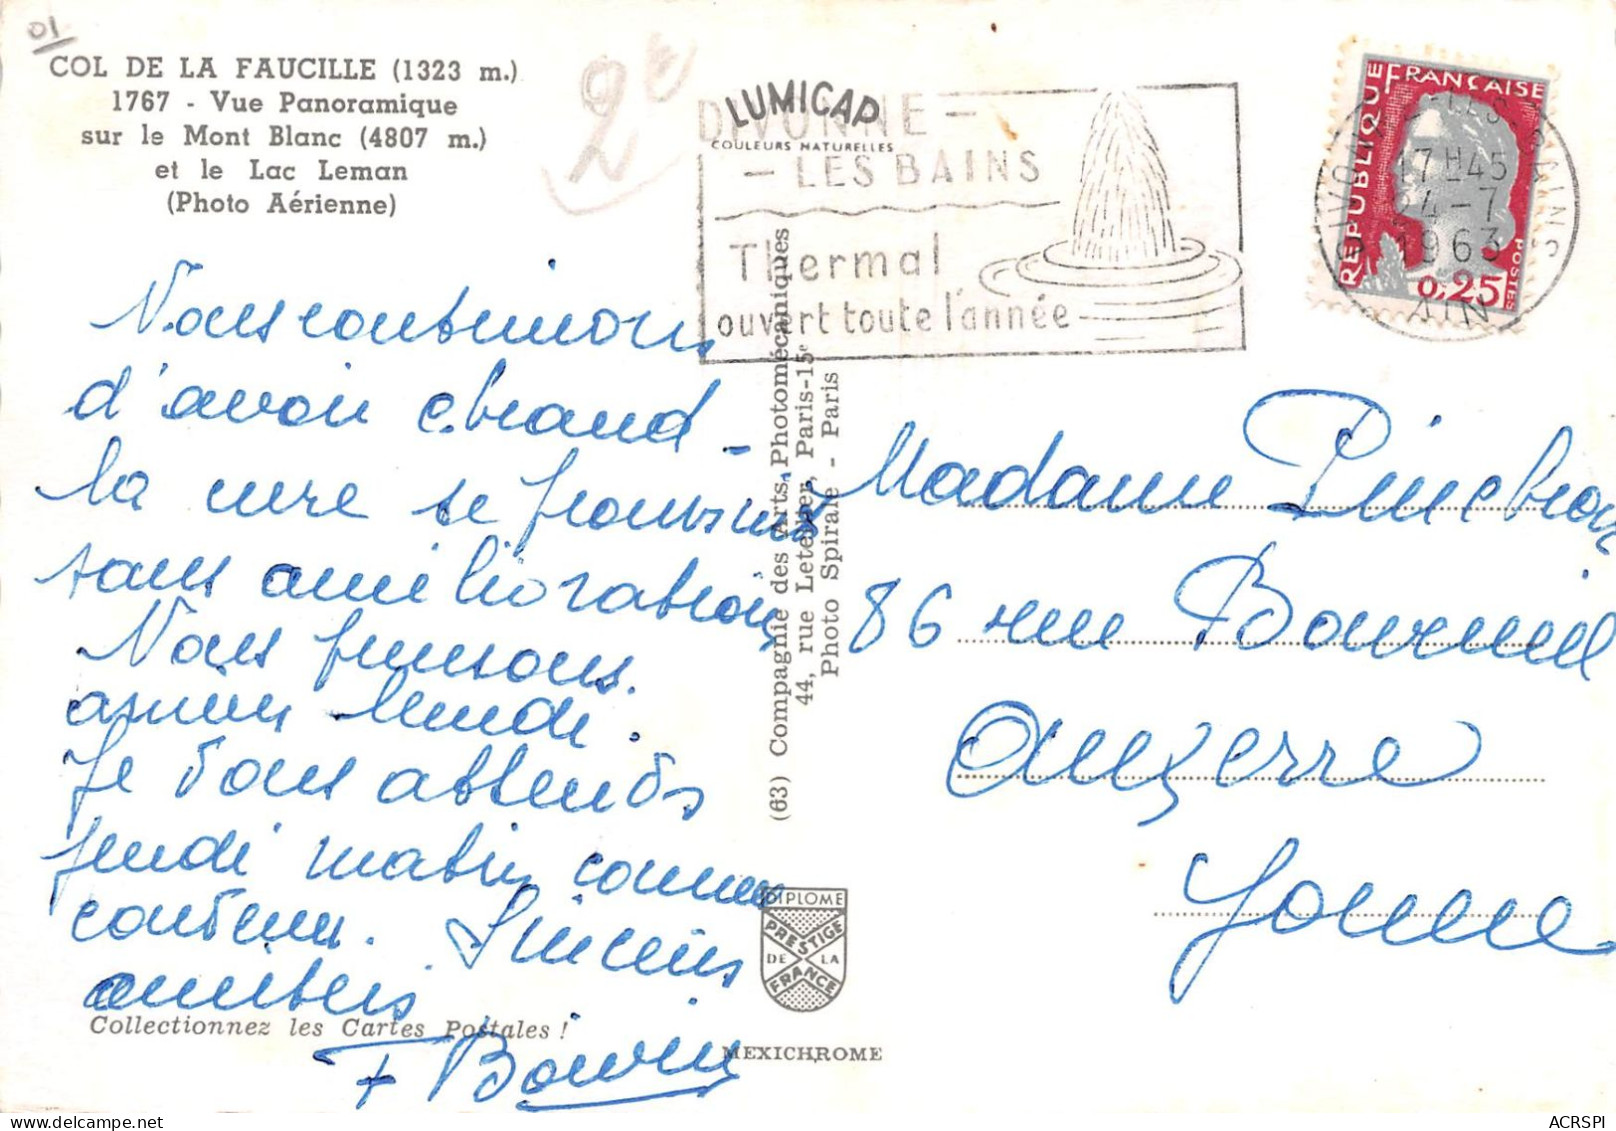 01
COL DE LA FAUCILLE (1323 m.)
1767 - Vue Panoramique
sur le Mont Blanc (4807 m.)
et le Lac Leman
(Photo Aérienne)
2€
LUMICAP
COULEURS NATURELLES
DIVONNE -
- LES BAINS
Thermal
ouvert toute l'année
RÉPUBLIQUE FRANÇAISE
0,25
POSTES
17H45
24-7
1963
AIN
Nous continuons
d'avoir chaud -
la cure se poursuit
sans amélioration
Nous pensons
arriver lundi.
Je vous attends
jeudi matin comme
convenu. Sincères
amitiés
F Bouvin
Madame Pinchon
86 rue Bourneil
Auxerre
Yonne
(63) Compagnie des Arts Photomécaniques
44, rue Letellier, Paris-15e
Photo Spirale - Paris
DIPLOME
PRESTIGE
DE LA
FRANCE
Collectionnez les Cartes Postales !
MEXICHROME
ACRSPI